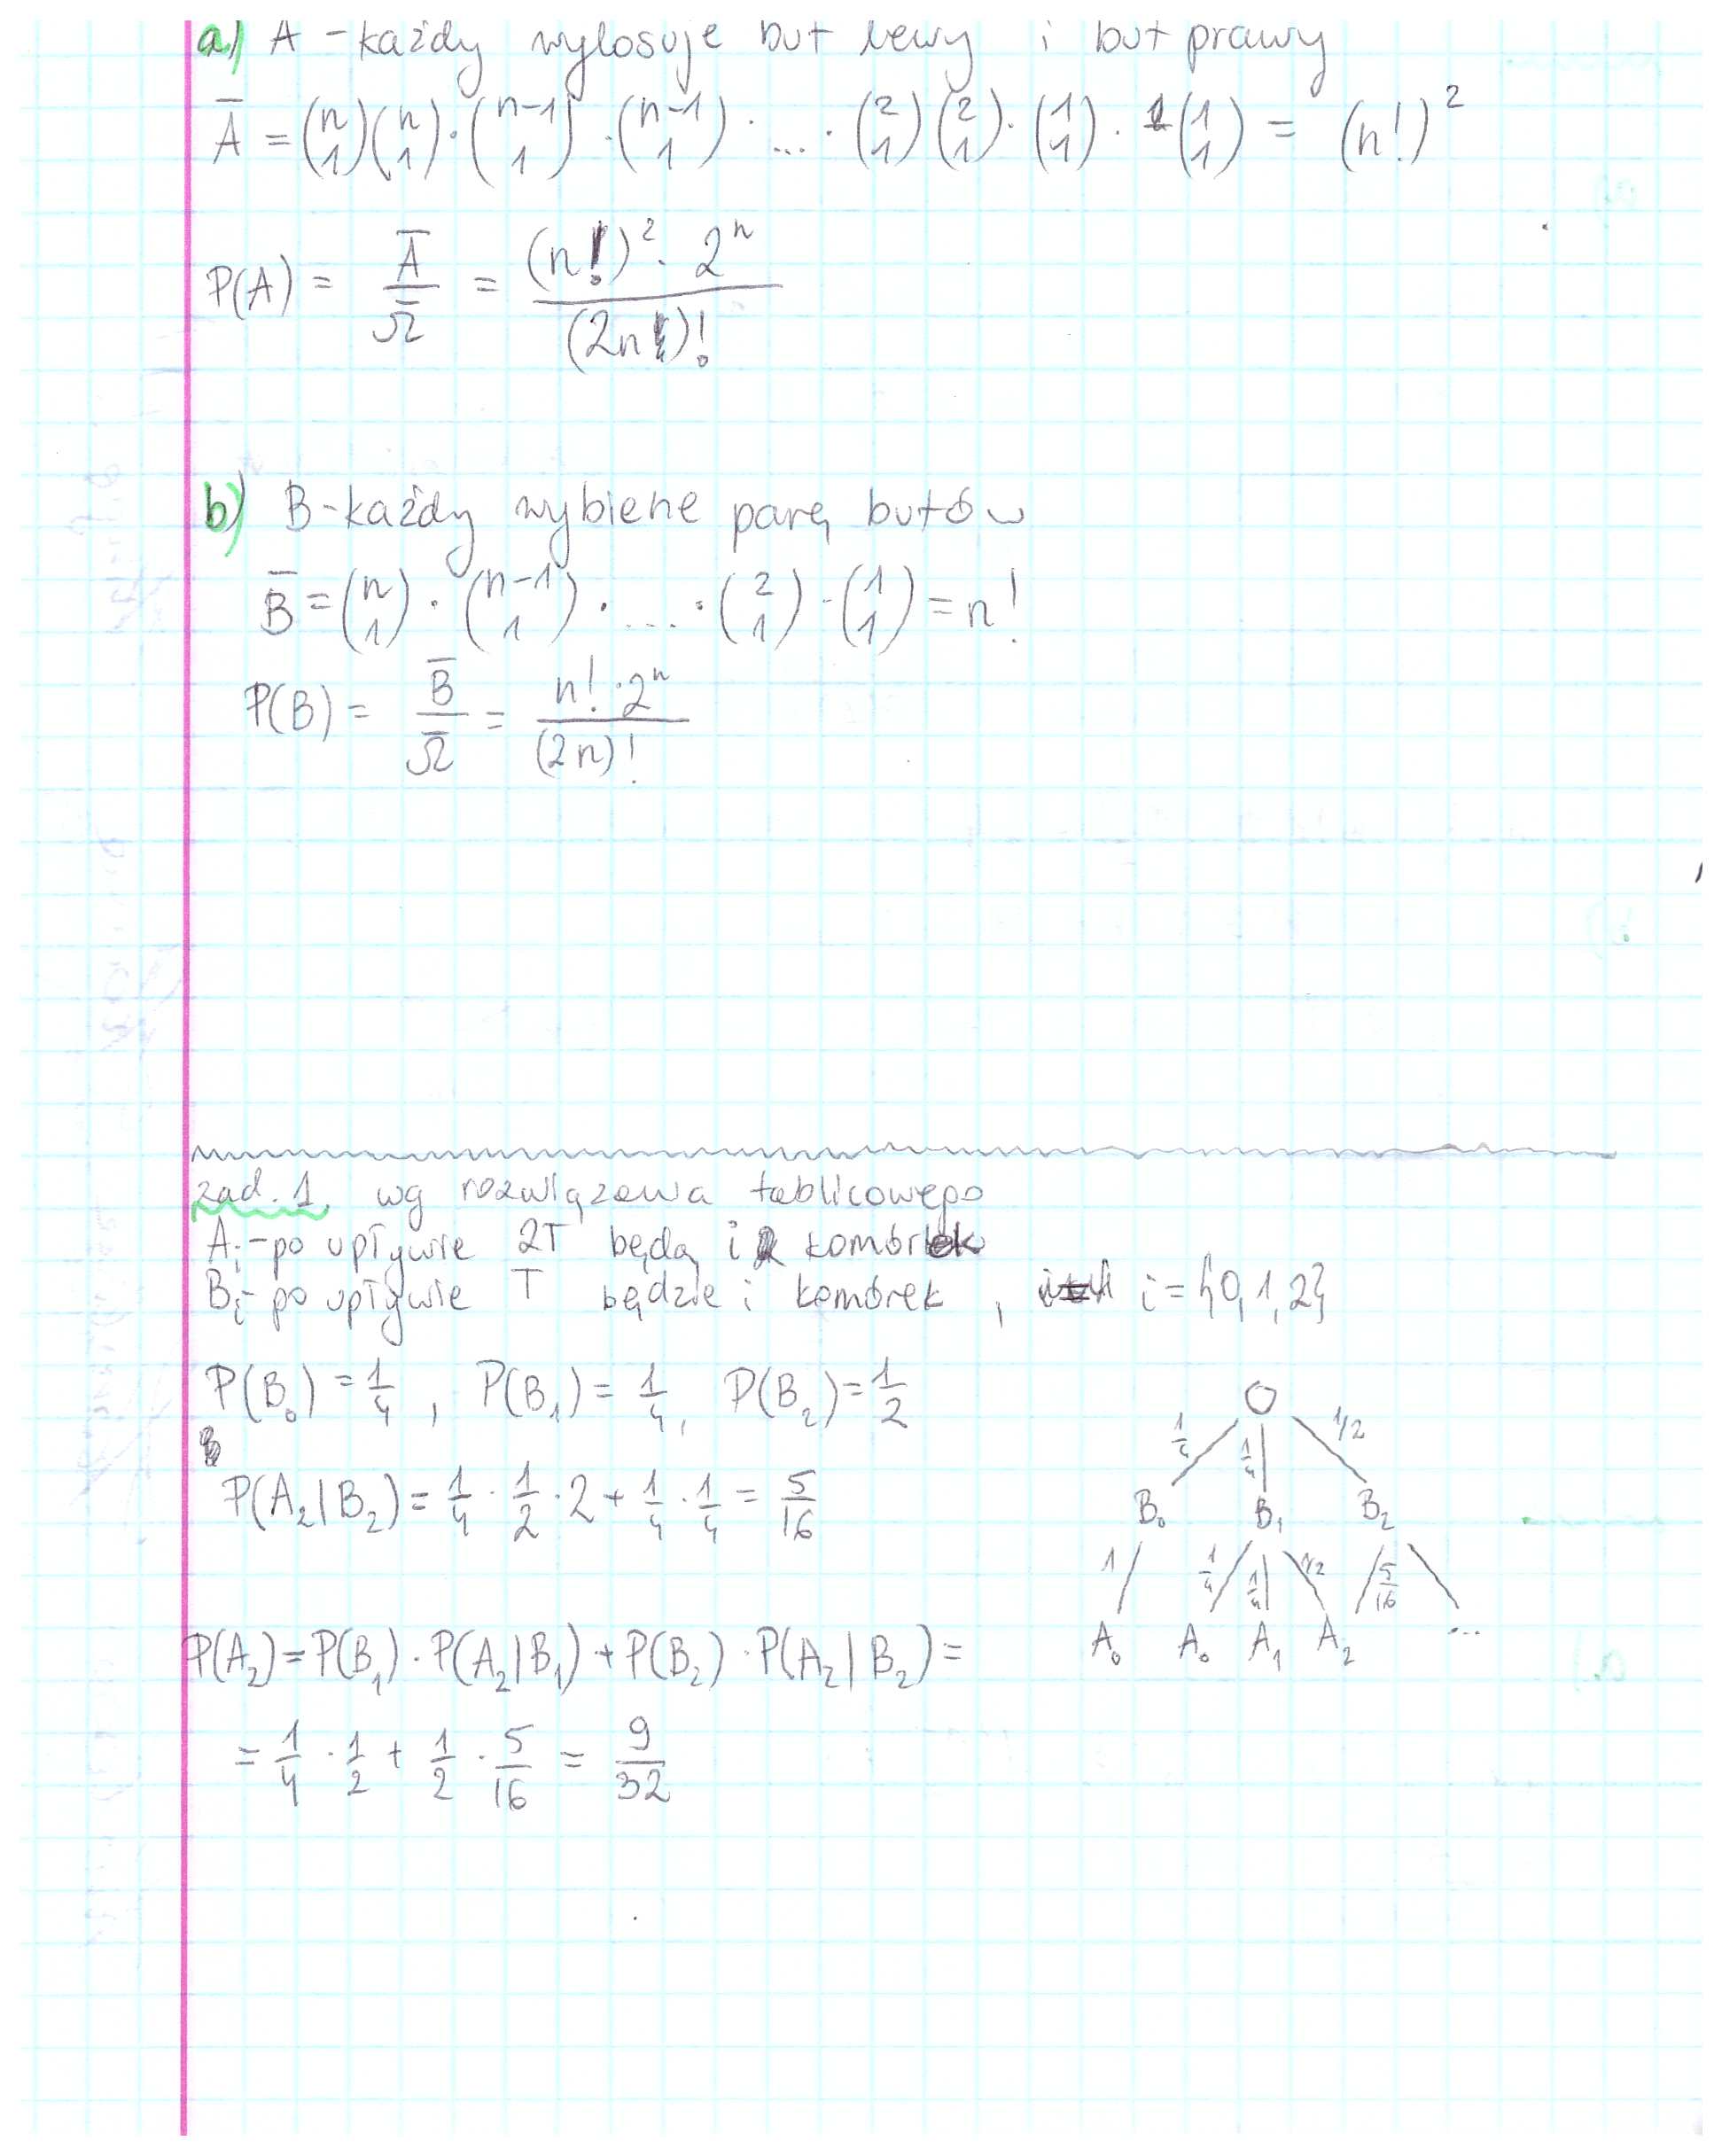 a) A - każdy wylosuje but lewy i but prawy
A̅ = (n 1)(n 1)·(n-1 1)·(n-1 1)· ... ·(2 1)(2 1)·(1 1)·(1 1) = (n!)²
P(A) = A̅/Ω̅ = (n!)²·2ⁿ/(2n)!
b) B - każdy wybierze parę butów
B̅ = (n 1)·(n-1 1)· ... ·(2 1)·(1 1) = n!
P(B) = B̅/Ω̅ = n!·2ⁿ/(2n)!
zad. 1. wg rozwiązania tablicowego
Aᵢ - po upływie 2T będą i komórek
Bᵢ - po upływie T będzie i komórek, i = {0,1,2}
P(B₀) = 1/4, P(B₁) = 1/4, P(B₂) = 1/2
P(A₂|B₂) = 1/4·1/2·2 + 1/4·1/4 = 5/16
P(A₂) = P(B₁)·P(A₂|B₁) + P(B₂)·P(A₂|B₂) =
= 1/4·1/2 + 1/2·5/16 = 9/32
1/4 1/4 1/2
B₀ B₁ B₂
1 1/4 1/4 1/2 5/16
A₀ A₀ A₁ A₂ ...